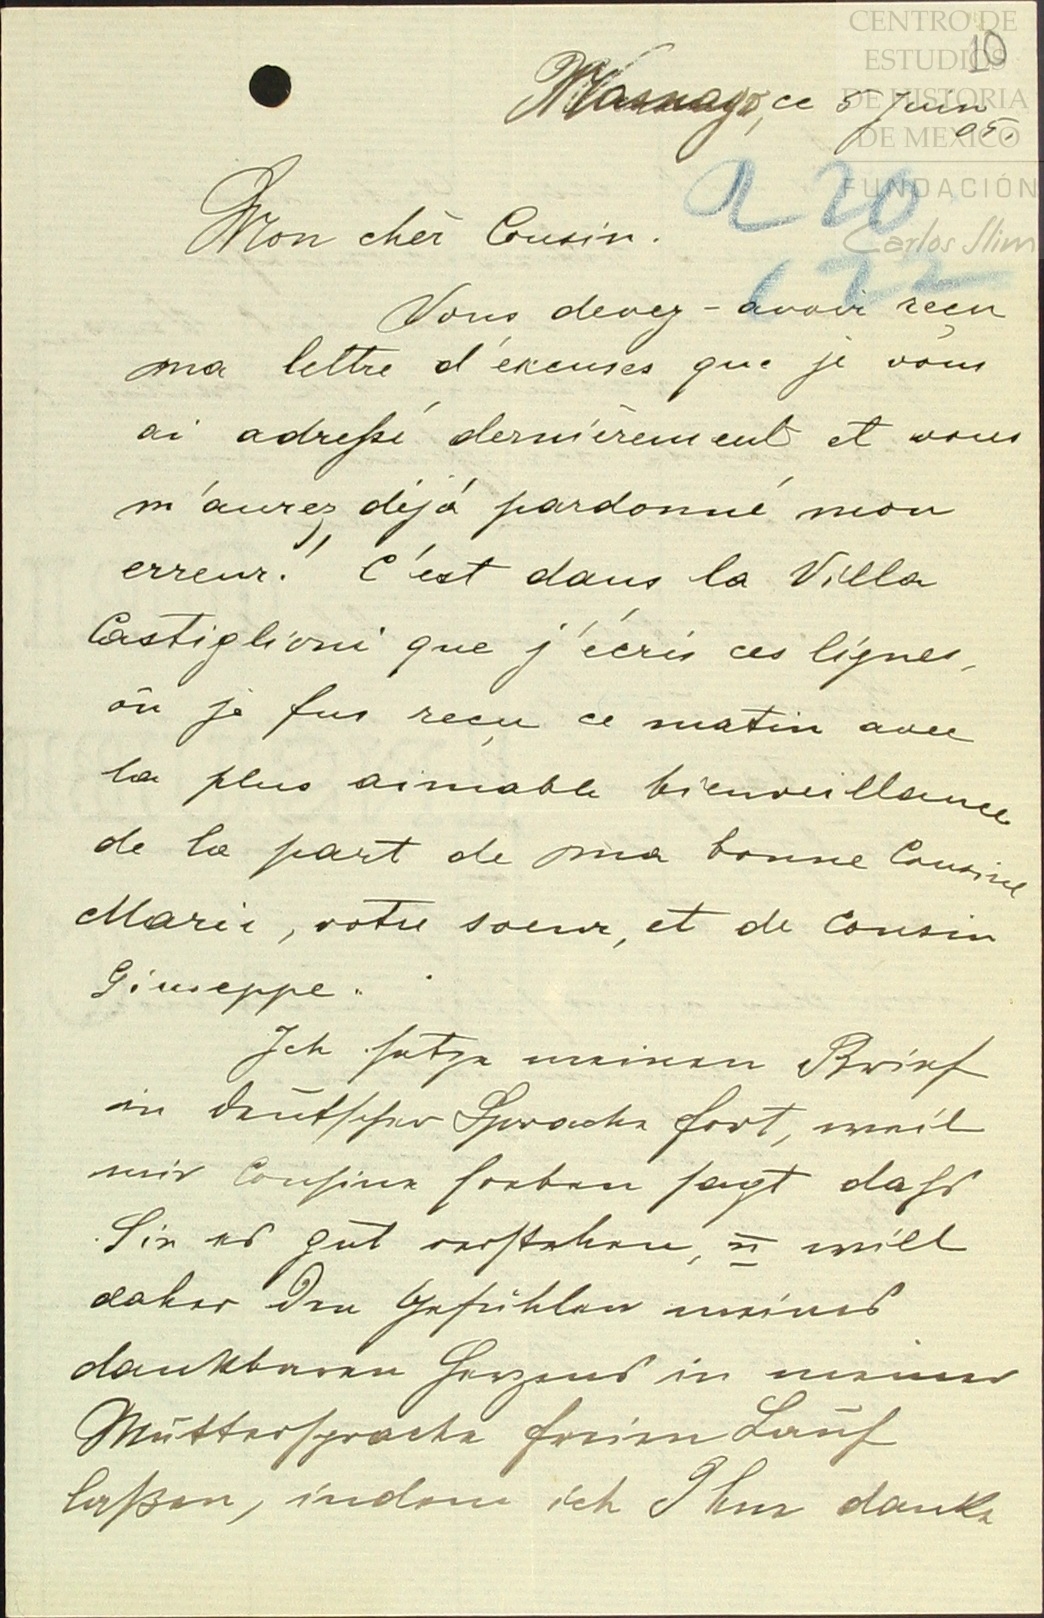 CENTRO DE
ESTUDIOS
DE HISTORIA
DE MEXICO
FUNDACIÓN
Carlos Slim
10
Masnago, ce 5 Juin
05.
a 20
122
Mon cher Cousin.
Vous devez-avoir reçu
ma lettre d'excuses que je vous
ai adreßé dernièrement et vous
m'aurez déjà pardonné mon
erreur! C'est dans la Villa
Castiglioni que j'écris ces lignes,
où je fus reçu ce matin avec
la plus aimable bienveillance
de la part de ma bonne Cousine
Marie, votre soeur, et de Cousin
Giuseppe.
Ich setze meinen Brief
in deutscher Sprache fort, weil
mir Cousine soeben sagt daß
Sie es gut verstehen, u will
daher den Gefühlen meines
dankbaren Herzens in meiner
Muttersprache freien Lauf
laßen, indem ich Ihne danke